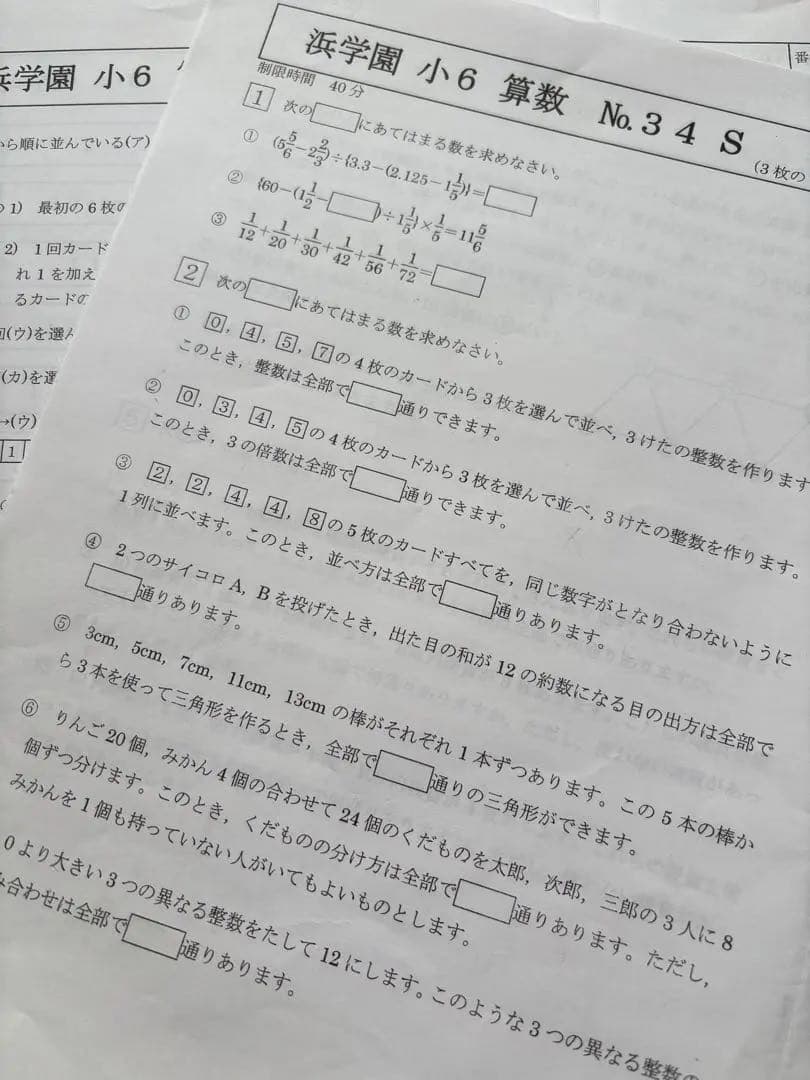 浜学園 小6 算数 №34 S
制限時間 40分
(3枚の
番
1 次の□にあてはまる数を求めなさい。
① (5 5/6−2 2/3)÷{3.3−(2.125−1 1/5)}=□
② {60−(1 1/2−□)÷1 1/5}×1/5=11 5/6
③ 1/12+1/20+1/30+1/42+1/56+1/72=□
2 次の□にあてはまる数を求めなさい。
① 0, 4, 5, 7の4枚のカードから3枚を選んで並べ, 3けたの整数を作ります
このとき, 整数は全部で□通りできます。
② 0, 3, 4, 5の4枚のカードから3枚を選んで並べ, 3けたの整数を作ります。
このとき, 3の倍数は全部で□通りできます。
③ 2, 2, 4, 4, 8の5枚のカードすべてを, 同じ数字がとなり合わないように
1列に並べます。このとき, 並べ方は全部で□通りあります。
④ 2つのサイコロA, Bを投げたとき, 出た目の和が12の約数になる目の出方は全部で
□通りあります。
⑤ 3cm, 5cm, 7cm, 11cm, 13cmの棒がそれぞれ1本ずつあります。この5本の棒か
ら3本を使って三角形を作るとき, 全部で□通りの三角形ができます。
⑥ りんご20個, みかん4個の合わせて24個のくだものを太郎, 次郎, 三郎の3人に8
個ずつ分けます。このとき, くだものの分け方は全部で□通りあります。ただし,
みかんを1個も持っていない人がいてもよいものとします。
0より大きい3つの異なる整数をたして12にします。このような3つの異なる整数の
み合わせは全部で□通りあります。
浜学園 小6
から順に並んでいる(ア)
1) 最初の6枚の
2) 1回カード
れ1を加え
るカードの
(ウ)を選ん
(カ)を選
→(ウ)
1